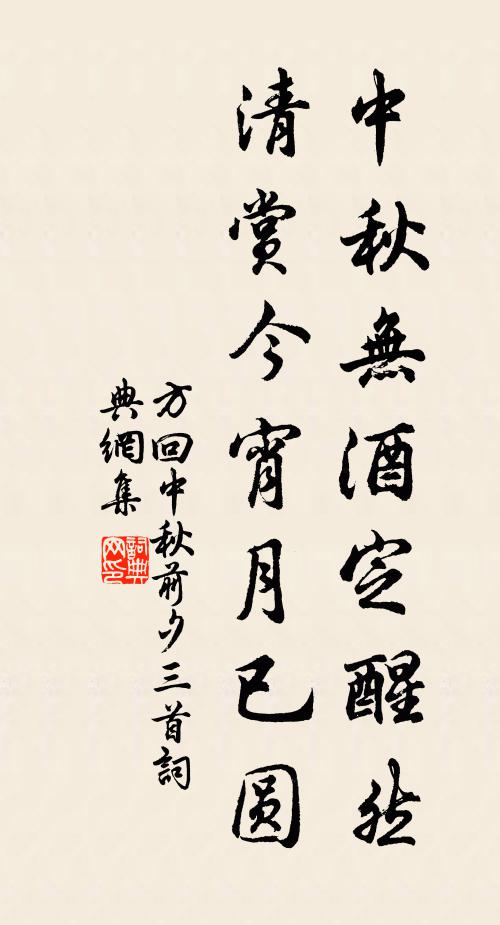 中秋無酒定醒然
清賞今宵月已圆
方回中秋前夕三首詞
典網集
詞典网印